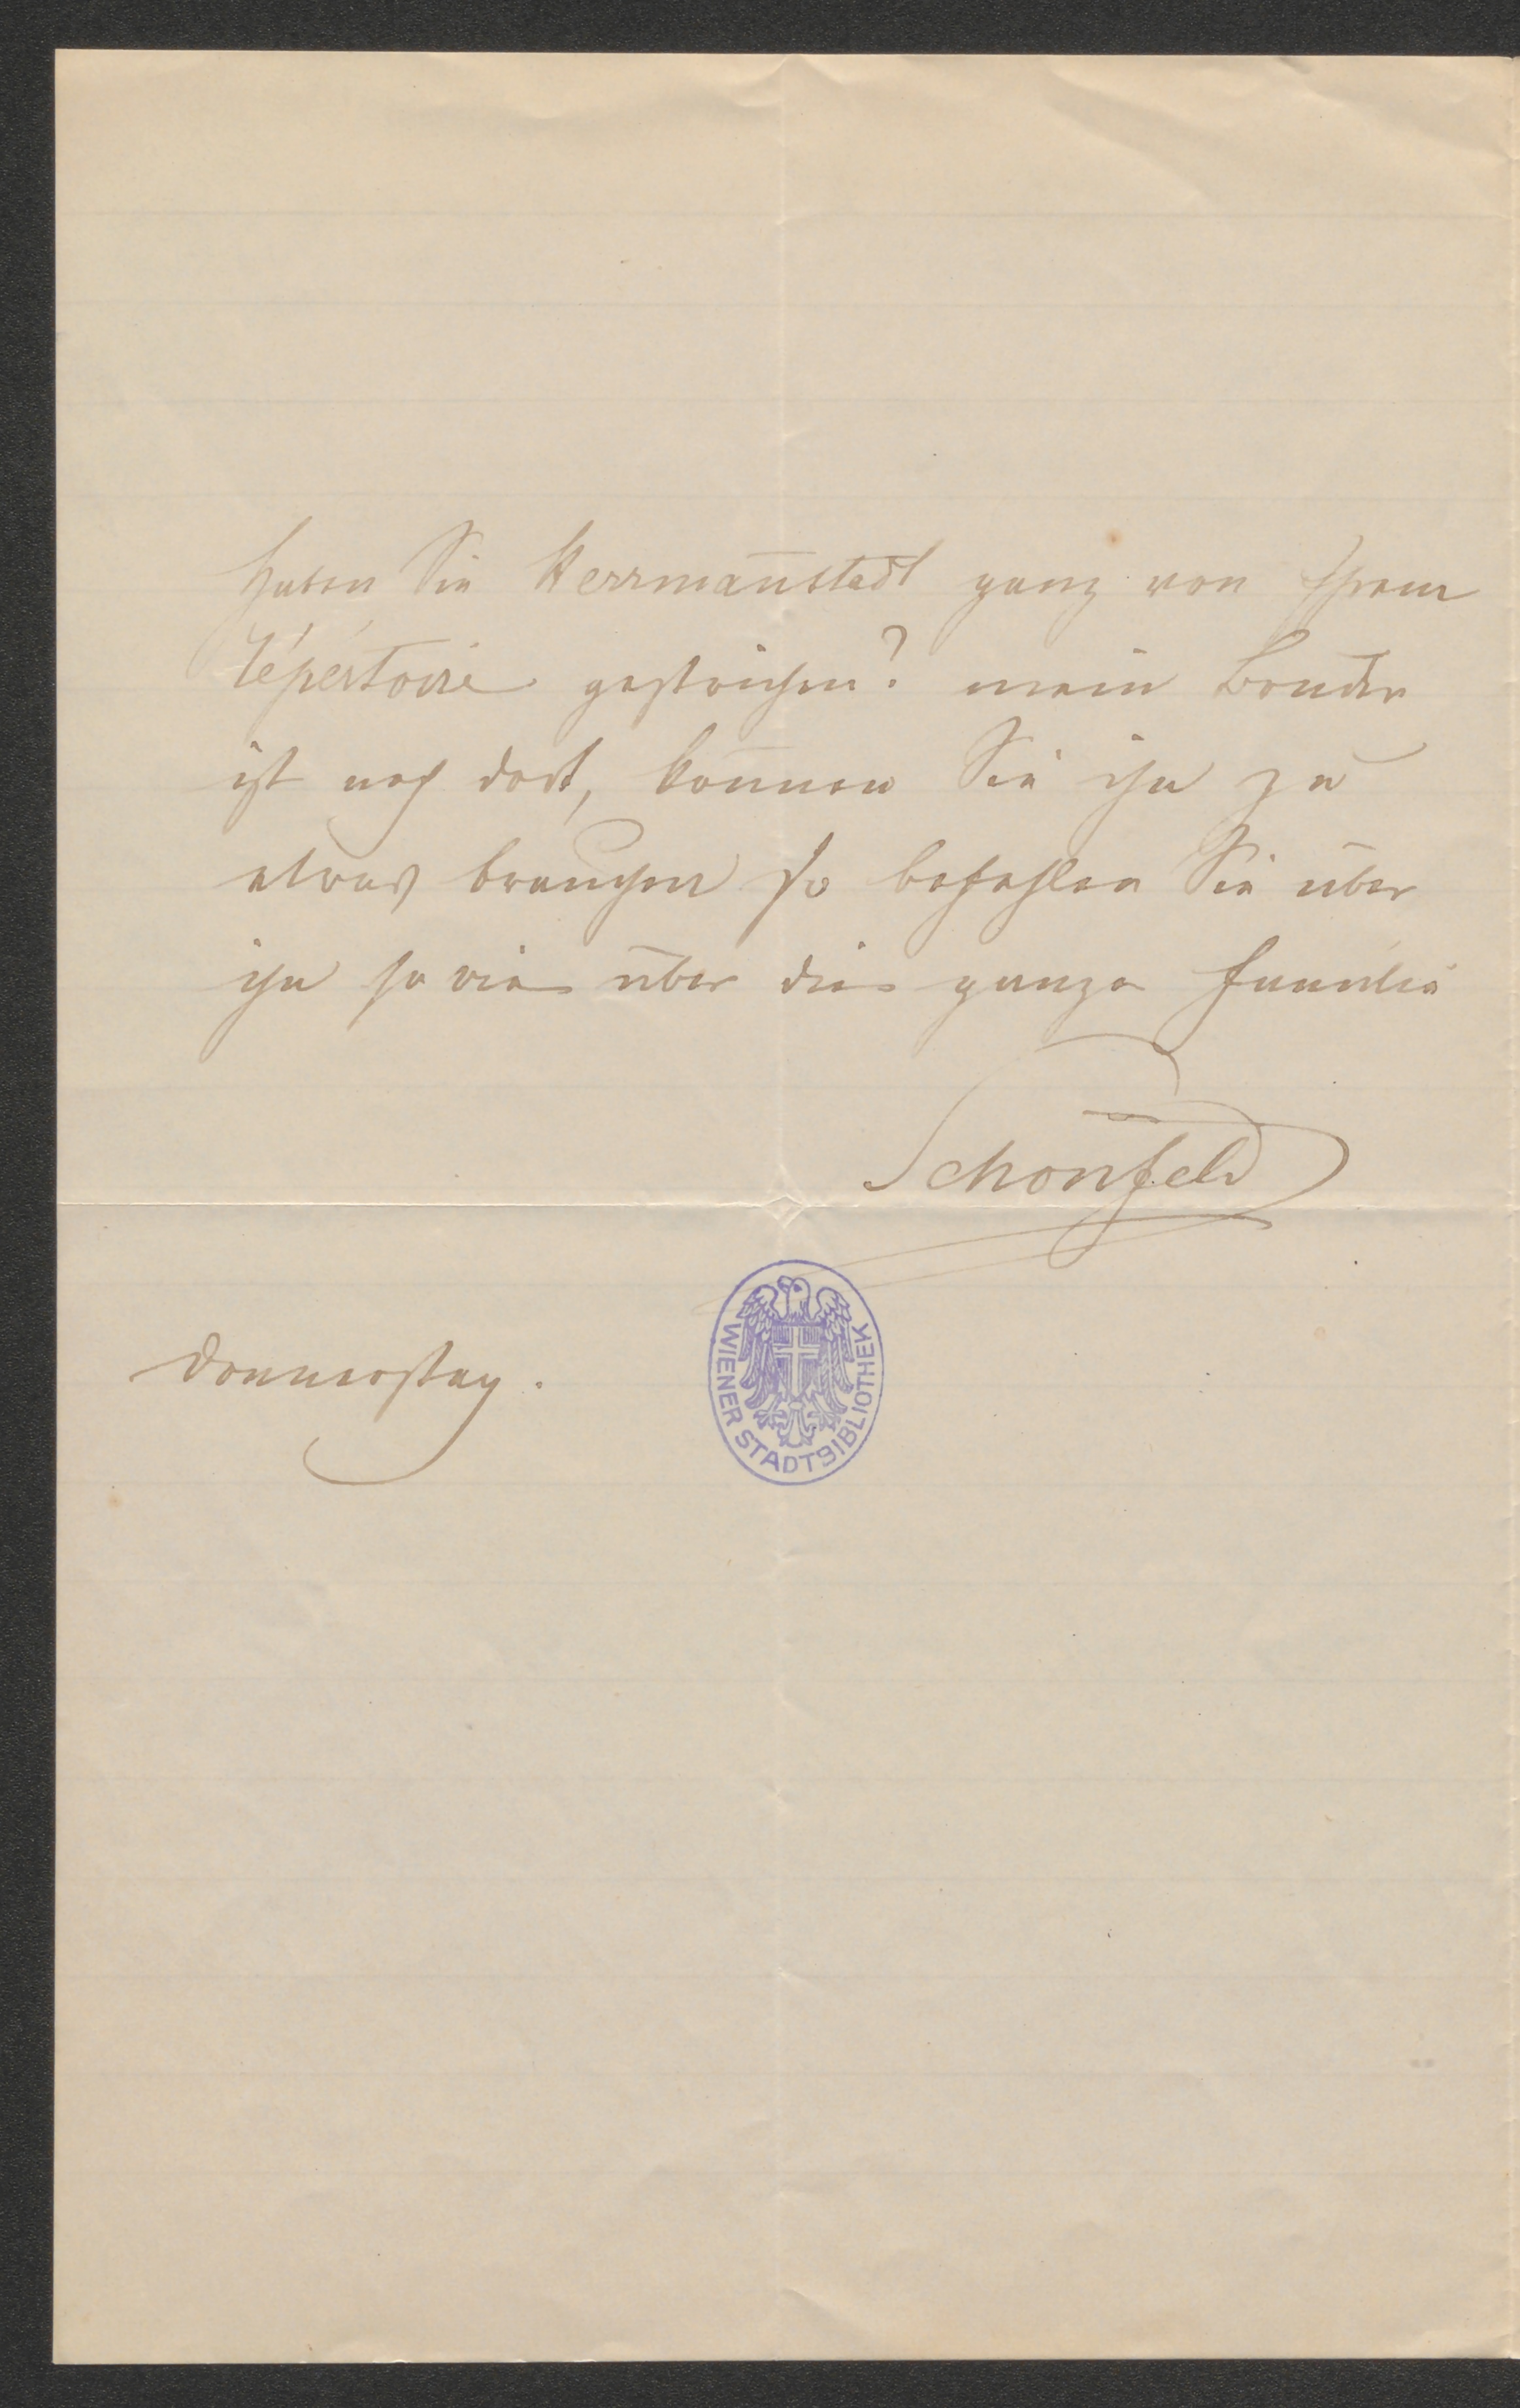 Haben Sie Herrmanstadt ganz von Ihrem
répértoire gestrichen? mein Bruder
ist noch dort, können Sie ihn zu
etwas brauchen so befehlen Sie über
ihn so wie über die ganze Familie
Schönfeld
Donnerstag.
WIENER STADTBIBLIOTHEK